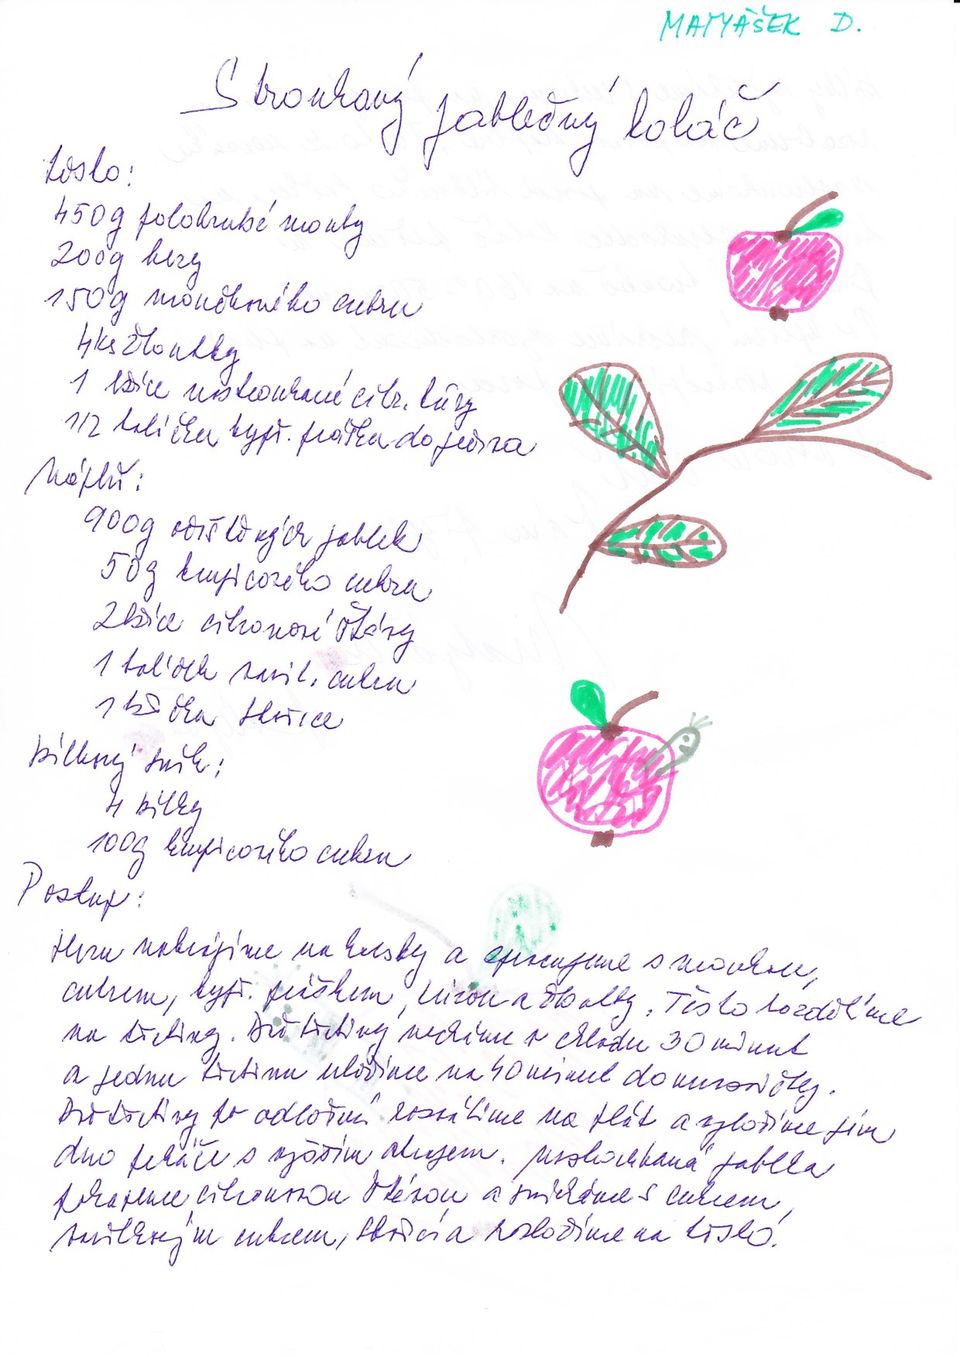 MATYÁŠEK D.
Strouhaný jablečný koláč
těsto:
450g polohrubé mouky
200g hery
150g moučkového cukru
4ks žloutky
1 lžíce nastrouhané citr. kůry
1/2 balíčku kypř. prášku do pečiva
náplň:
900g očištěných jablek
50g krupicového cukru
2 lžíce citronové šťávy
1 balíček vanil. cukru
1 lžička skořice
bílkový sníh:
4 bílky
100g krupicového cukru
Postup:
Heru nakrájíme na kousky a zpracujeme s moukou,
cukrem, kypř. práškem, kůrou a žloutky. Těsto rozdělíme
na třetiny. Dvě třetiny necháme v chladu 30 minut
a jednu třetinu uložíme na 40 minut do mrazničky.
Dvě třetiny po odležení rozválíme na plát a vyložíme jím
dno pekáče s vyšším okrajem. Nastrouhaná jablka
pokapeme citronovou šťávou a smícháme s cukrem,
vanilkovým cukrem, skořicí a rozložíme na těsto.